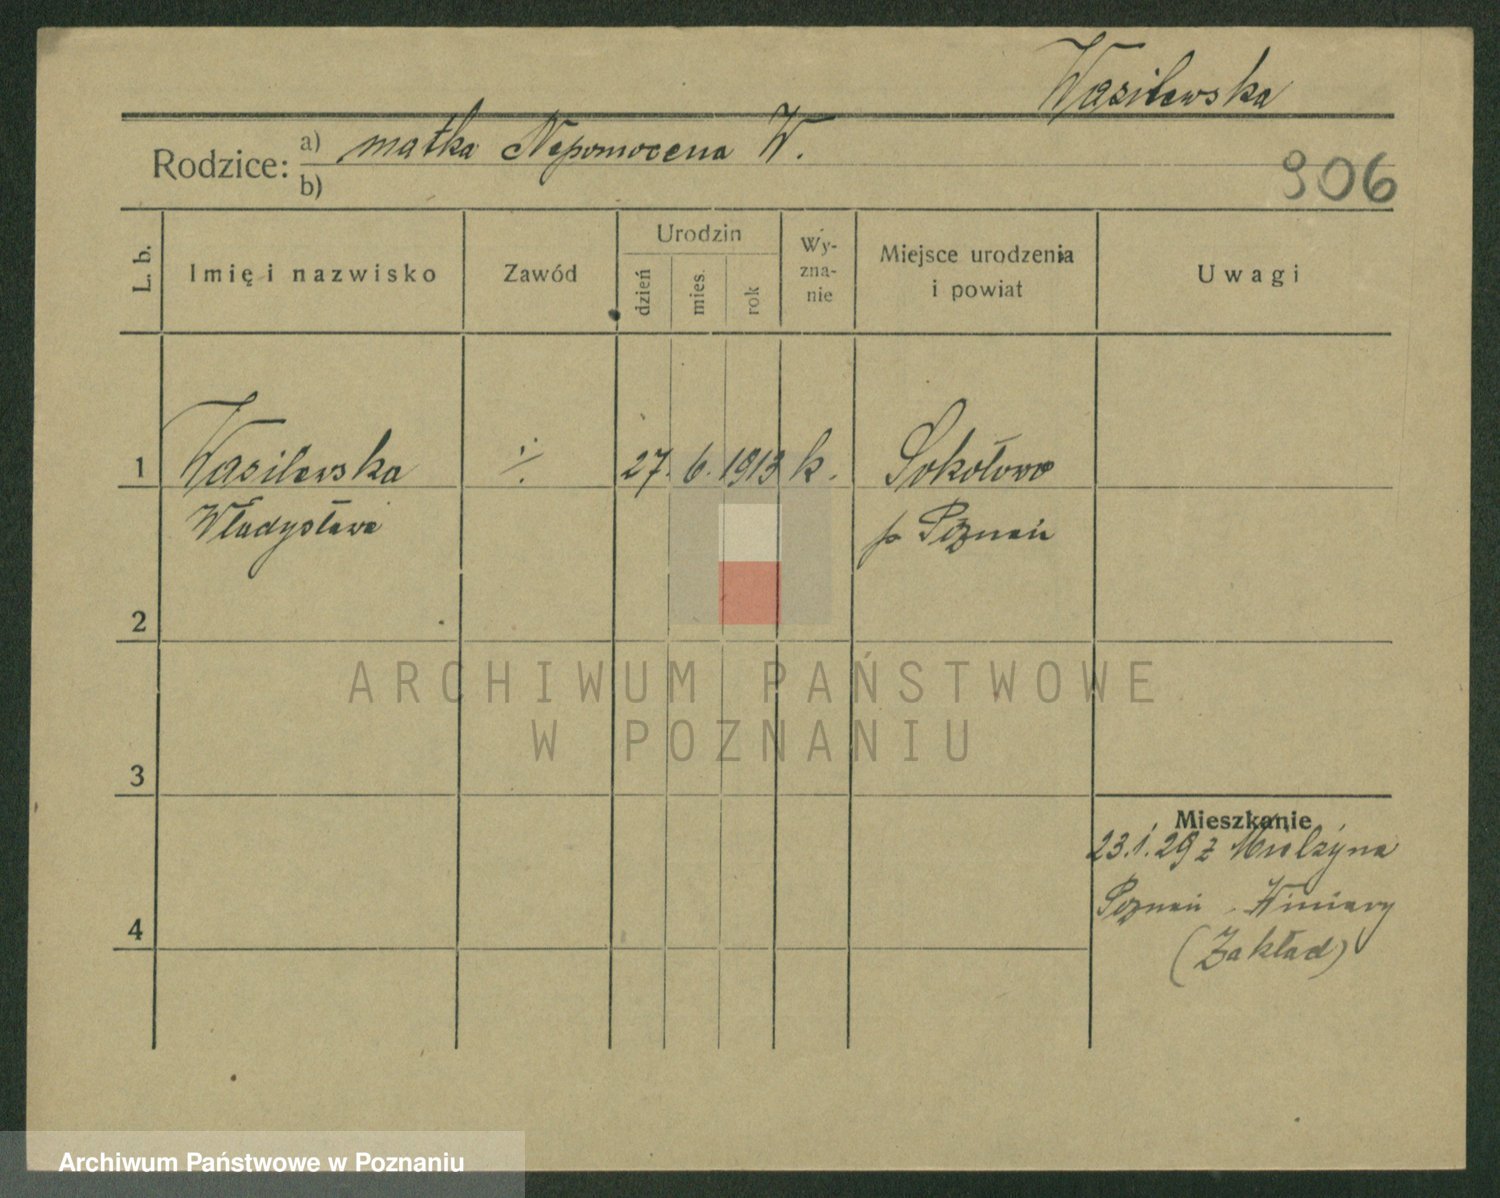 Wasilewska
Rodzice: a) matka Nepomocena W.
b)
906
L. b.
Imię i nazwisko
Zawód
Urodzin
dzień
mies.
rok
Wy-
zna-
nie
Miejsce urodzenia
i powiat
Uwagi
1 Wasilewska ·/· 27. 6. 1913 k. Sokołowo
Władysława p Poznań
2
3
4
Mieszkanie
23.1.29 z Mielżyna
Poznań - Winiary
(Zakład)
ARCHIWUM PAŃSTWOWE
W POZNANIU
Archiwum Państwowe w Poznaniu